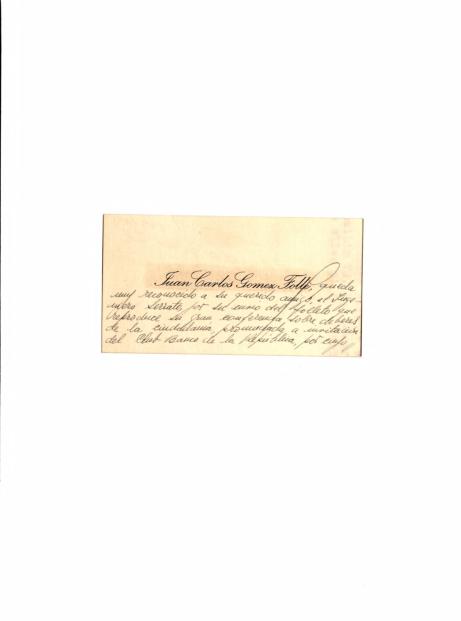 Juan Carlos Gomez Folle, queda
muy reconocido a su querido amigo el Inge-
niero Serrato, por su envio del folleto que
reproduce su gran conferencia sobre deberes
de la ciudadania, pronunciada a invitacion
del Club Banco de la Republica, por cuyo